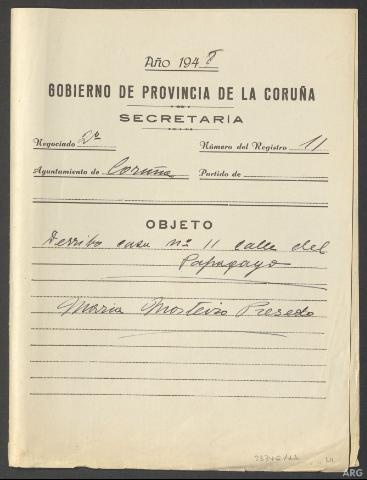 Año 1948
GOBIERNO DE PROVINCIA DE LA CORUÑA
SECRETARÍA
Negociado 2º Número del Registro 11
Ayuntamiento de Coruña Partido de
OBJETO
Derribo casa nº 11 calle del
Papagayo
Maria Mosteiro Presedo
ARG